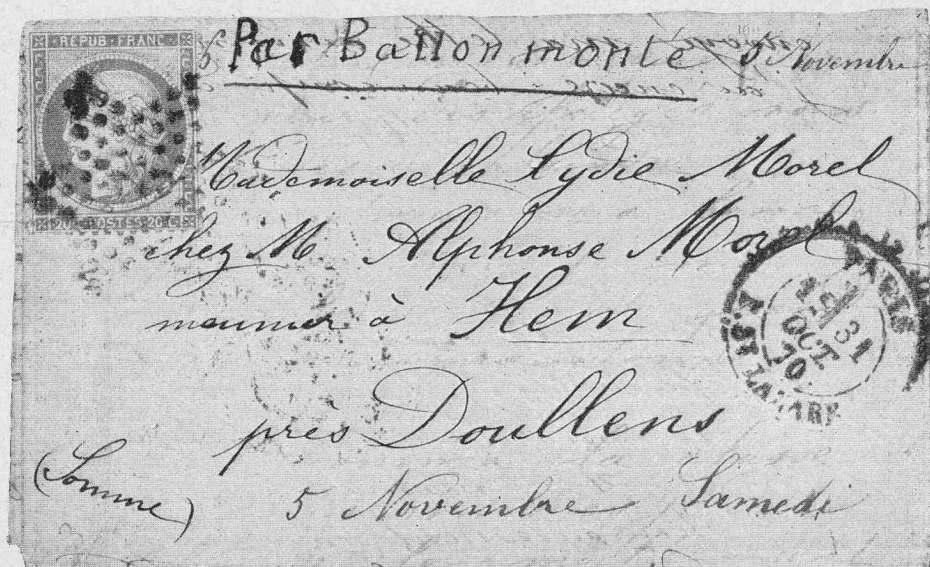 REPUB·FRANC·
Par Ballon monté 5 Novembre
Mademoiselle Lydie Morel
chez M. Alphonse Morel
meunier à Hem
près Doullens
(Somme)
5 Novembre Samedi
20 C POSTES 20 C
PARIS
31
OCT.
70
R. ST LAZARE